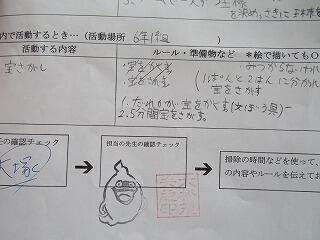 を決めっさきに
内で活動するとき…(活動場所 6年1組)
活動する内容
ルール・準備物など *絵で描いてもO
宝さがし
・宝をかくす
みつからないれ
・宝をさがす
(1ぱんと2はんに分かれ
宝をさがす
1.だれかが宝をかくす(文ぼう具)
2.5分間宝をさがす。
任の確認チェック
担当の先生の確認チェック
掃除の時間などを使って、
の内容やルールを伝えてお